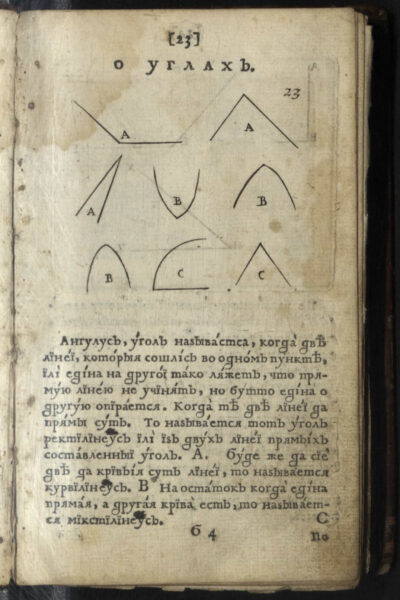 [23]
О УГЛАХЪ.
23
A
A
A
B
B
B
C
C
Ангулусъ, у́голъ называ́єтся, когда̀ двѣ̀
лїнеї, кото́рыя сошлїсь во одно́мъ пу́нктѣ,
їлї едїна на друго́ї та́ко ля́жетъ, что пря-
му́ю лїне́ю не учїня́тъ, но бу́тто едїна о
другу́ю опїра́ется. Когда̀ тѣ̀ двѣ̀ лїнеї да
пря́мы су́ть. То называ́ется тотъ у́голъ
ректїлїне́усъ їлї їзъ дву́хъ лїнеї прямы́хъ
соста́вленныї у́голъ. A. бу́де же да сїѐ
двѣ̀ да крївы́я суть лїнеї, то называ́ется
курвїлїне́усъ. B На оста́токъ когда̀ едїна
пряма́я, а друга́я крїва̀ есть, то называ́ет-
ся мїкстїлїне́усъ. C
б 4
по